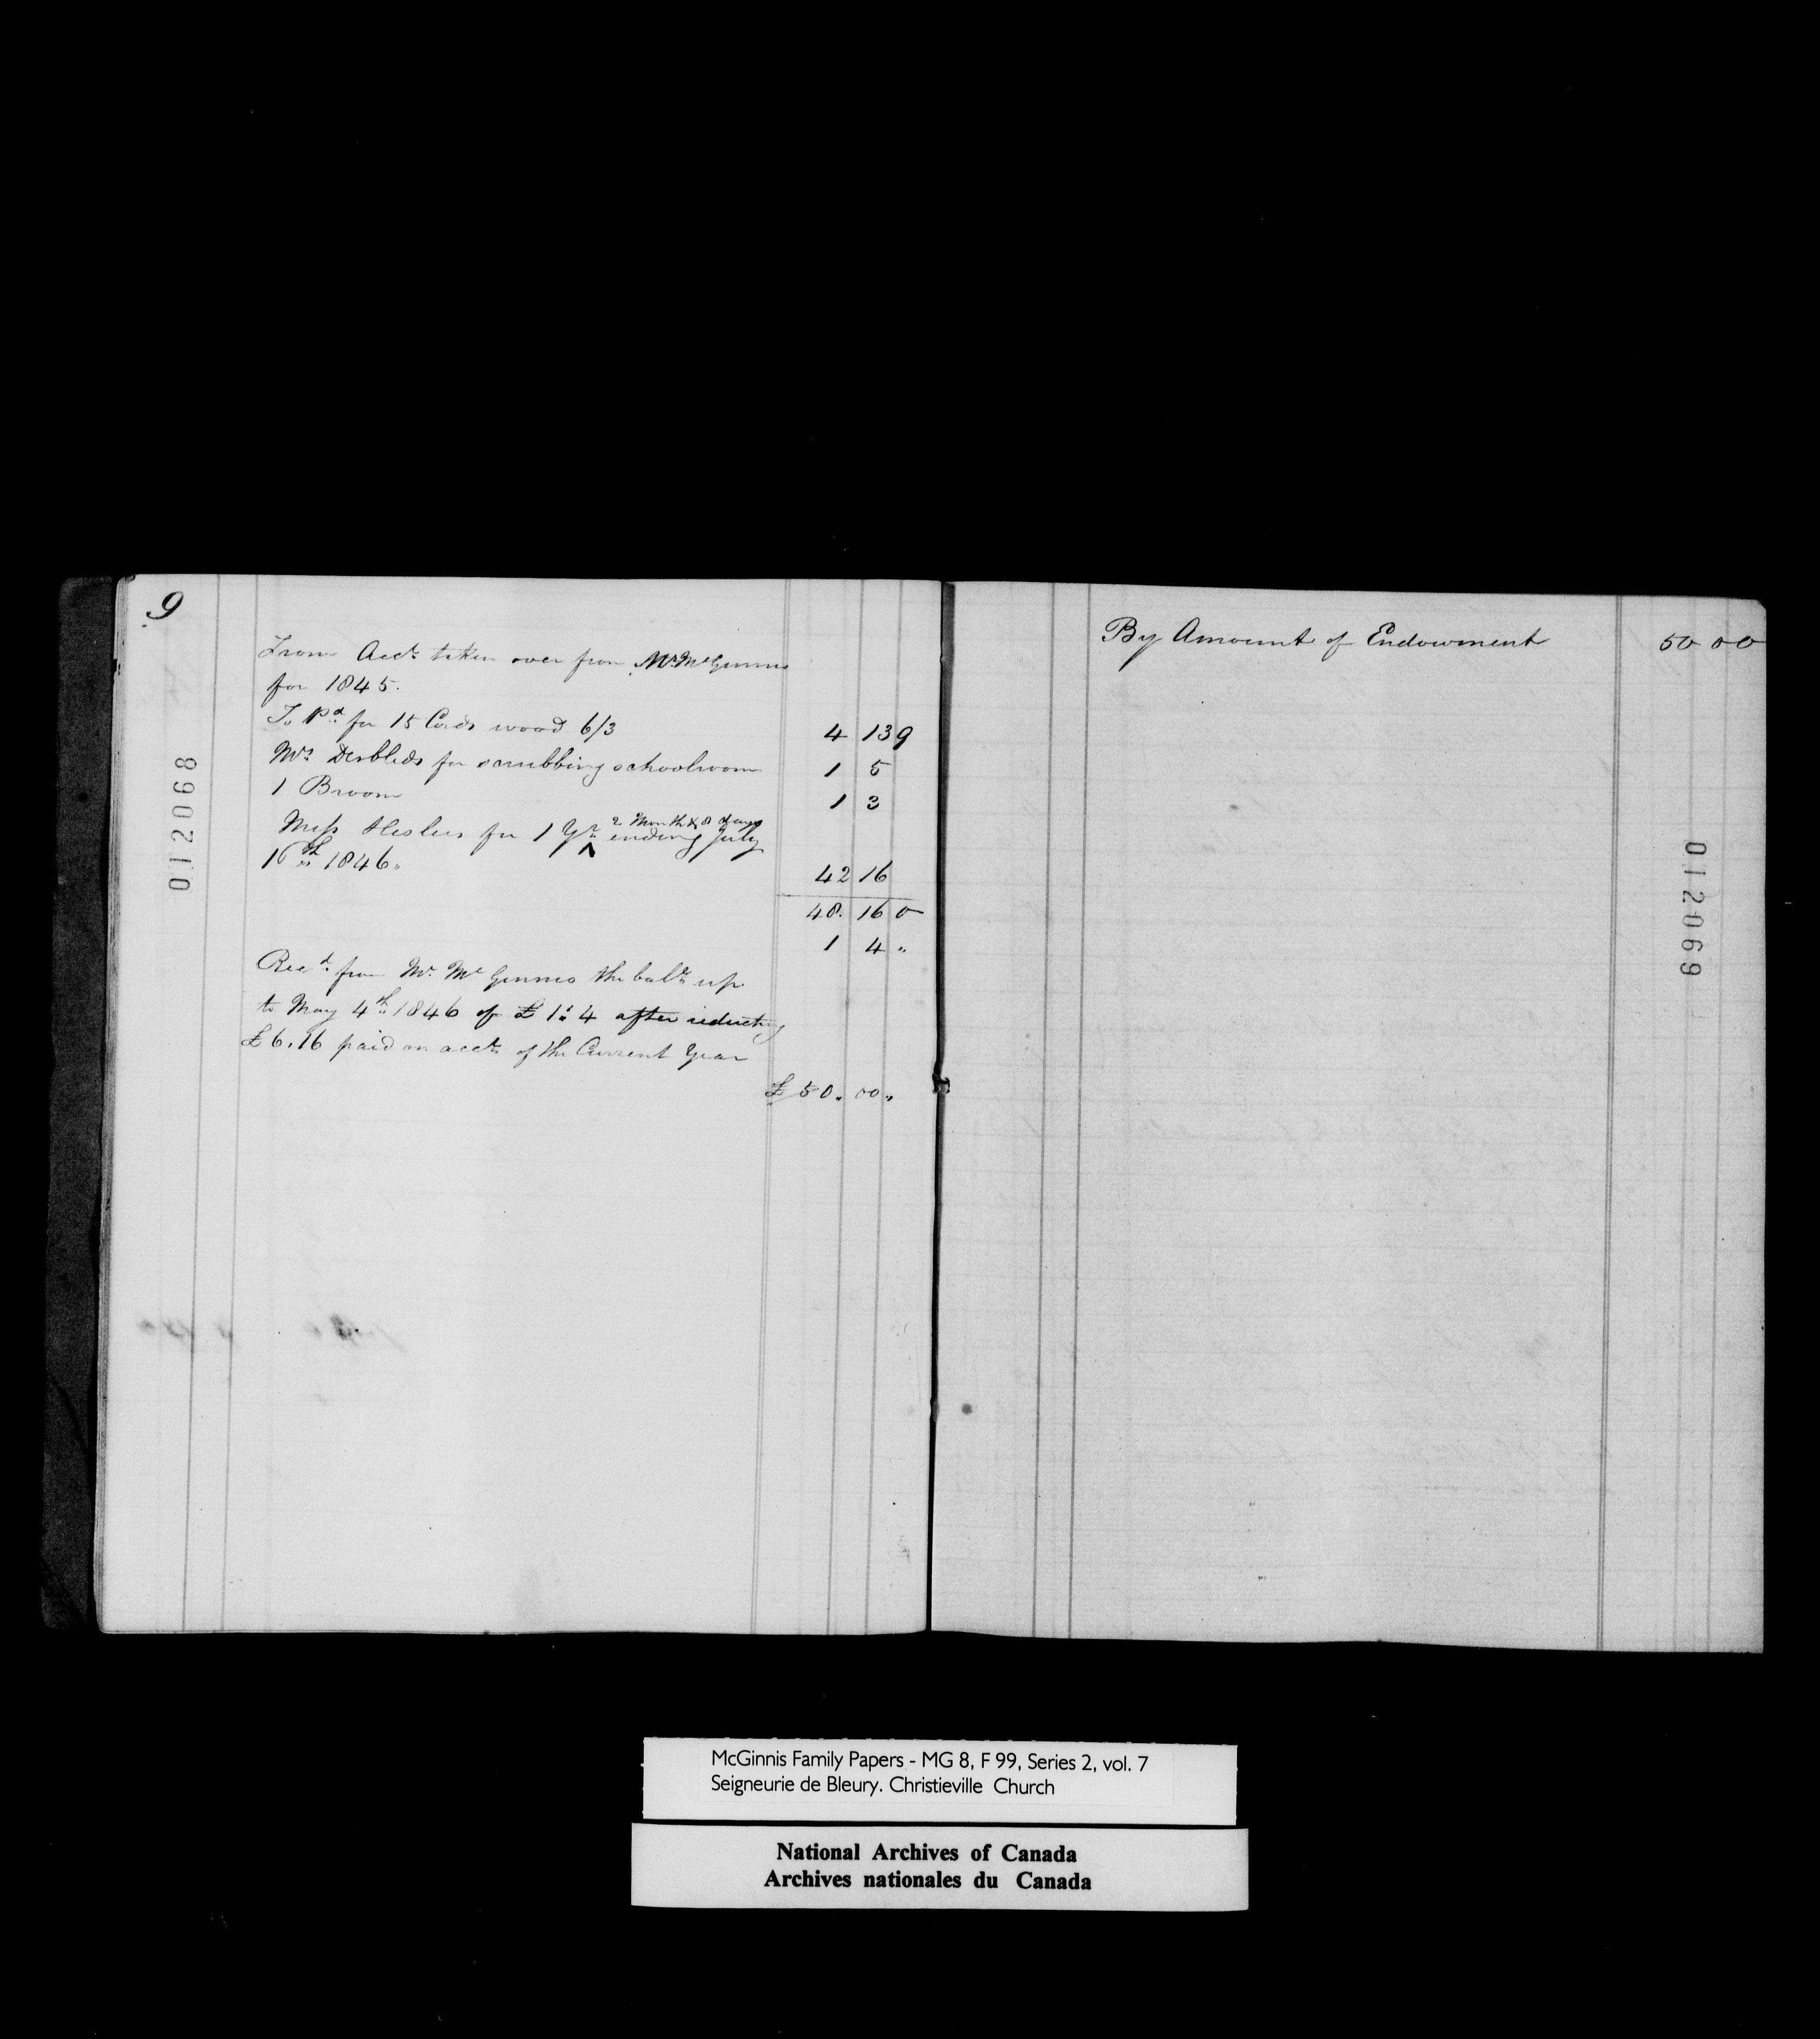 9
From Acct taken over from Mr McGinnis
for 1845.
To Pd for 15 Cords wood 6/3 4 13 9
Mrs for scrubbing schoolroom 1 5
1 Broom 1 3
Miss for 1 Yr 2 Months 8 days ending July
16th 1846. 42 16
48. 16 0
1 4 "
Recd from Mr McGinnis the balce up
to May 4th 1846 of £ 1:4 after deducting
£6.16 paid on acct of the Current Year
£50. 00 "
012068
By Amount of Endowment 50 00
012069
McGinnis Family Papers - MG 8, F 99, Series 2, vol. 7
Seigneurie de Bleury. Christieville Church
National Archives of Canada
Archives nationales du Canada